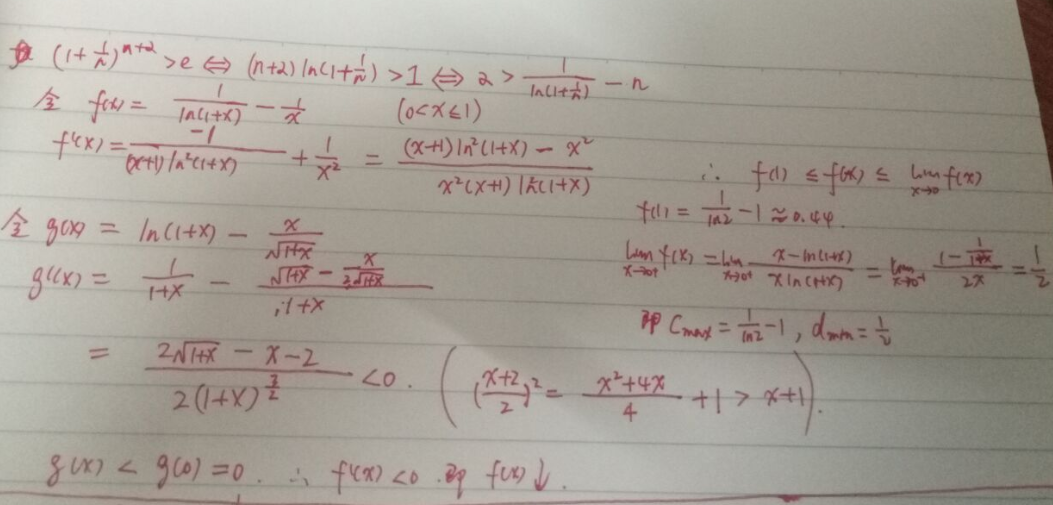 (1+1/n)^{n+2} >e ⇔ (n+2) ln(1+1/n) >1 ⇔ 2 > 1/ln(1+1/n) - n
令 f(x) = 1/ln(1+x) - 1/x (0<x≤1)
f'(x) = -1/((x+1)ln²(1+x)) + 1/x² = ((x+1)ln²(1+x) - x²)/(x²(x+1)ln²(1+x))
令 g(x) = ln(1+x) - x/√(1+x)
g'(x) = 1/(1+x) - (√(1+x) - x/(2√(1+x)))/(1+x)
= (2√(1+x) - x - 2)/(2(1+x)^{3/2}) <0. (((x+2)/2)² = (x²+4x)/4 +1 > x+1).
g(x) < g(0) =0. ∴ f'(x) <0 .即 f(x)↓.
∴ f(1) ≤ f(x) ≤ lim_{x→0} f(x)
f(1) = 1/ln2 - 1 ≈ 0.44.
lim_{x→0+} f(x) = lim_{x→0+} (x-ln(1+x))/(x ln(1+x)) = lim_{x→0+} (1 - 1/(1+x))/(2x) = 1/2
即 Cmax = 1/ln2 -1, dmin = 1/2